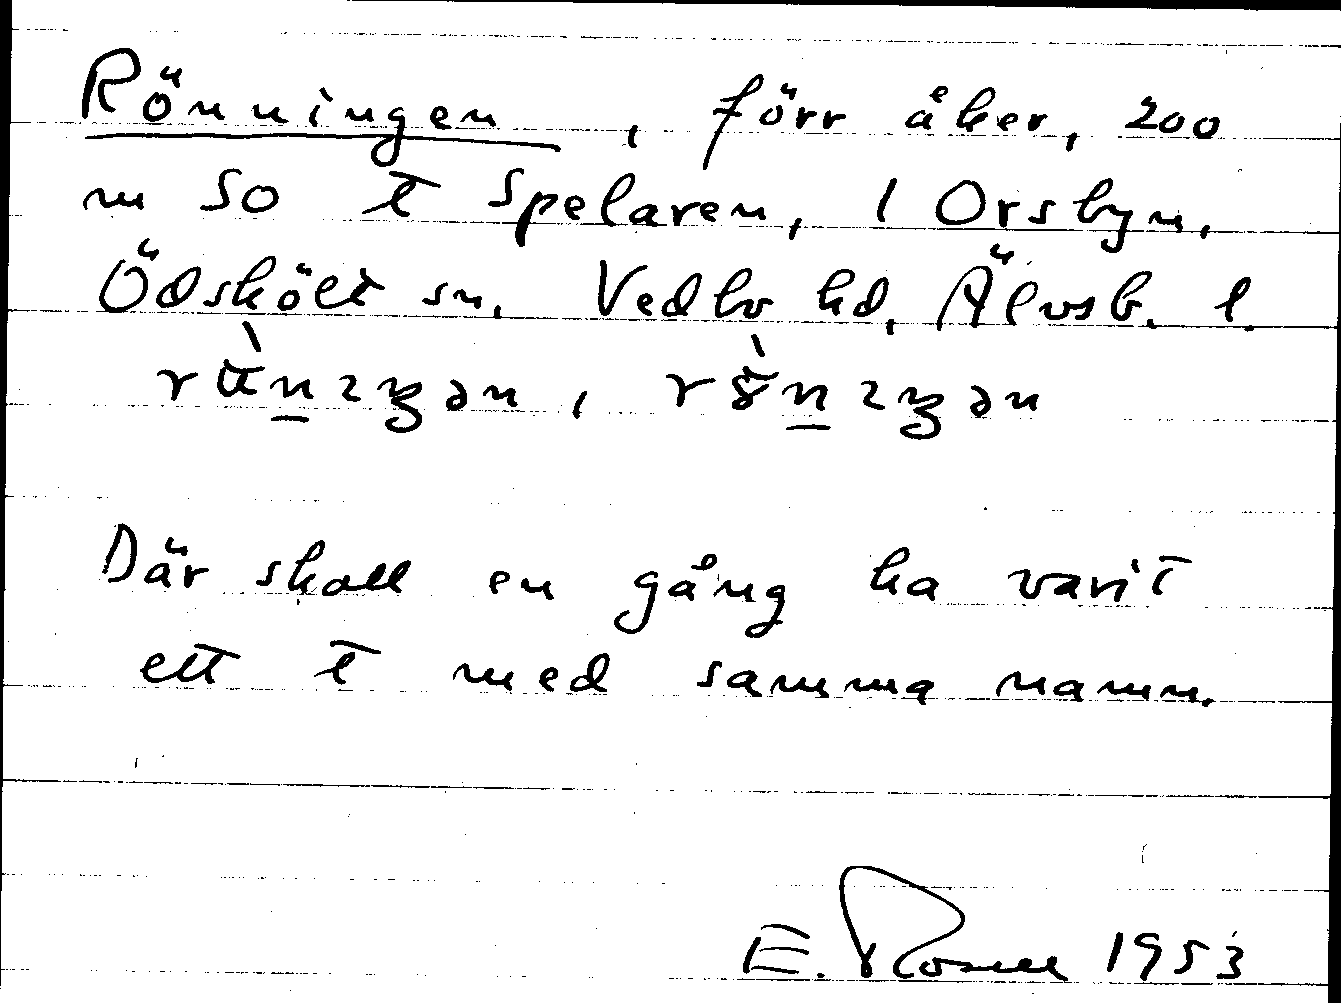 Rönningen, förr åker, 200
m SO t Spelaren, 1 Orsbyn,
Ödskölt sn, Vedbo hd, Älvsb. l.
Där skall en gång ha varit
ett t med samma namn.
E. 1953